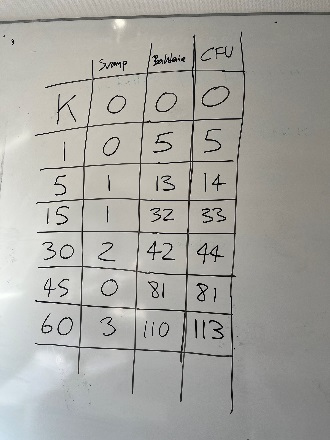 Svamp Bakterie CFU
K 0 0 0
1 0 5 5
5 1 13 14
15 1 32 33
30 2 42 44
45 0 81 81
60 3 110 113